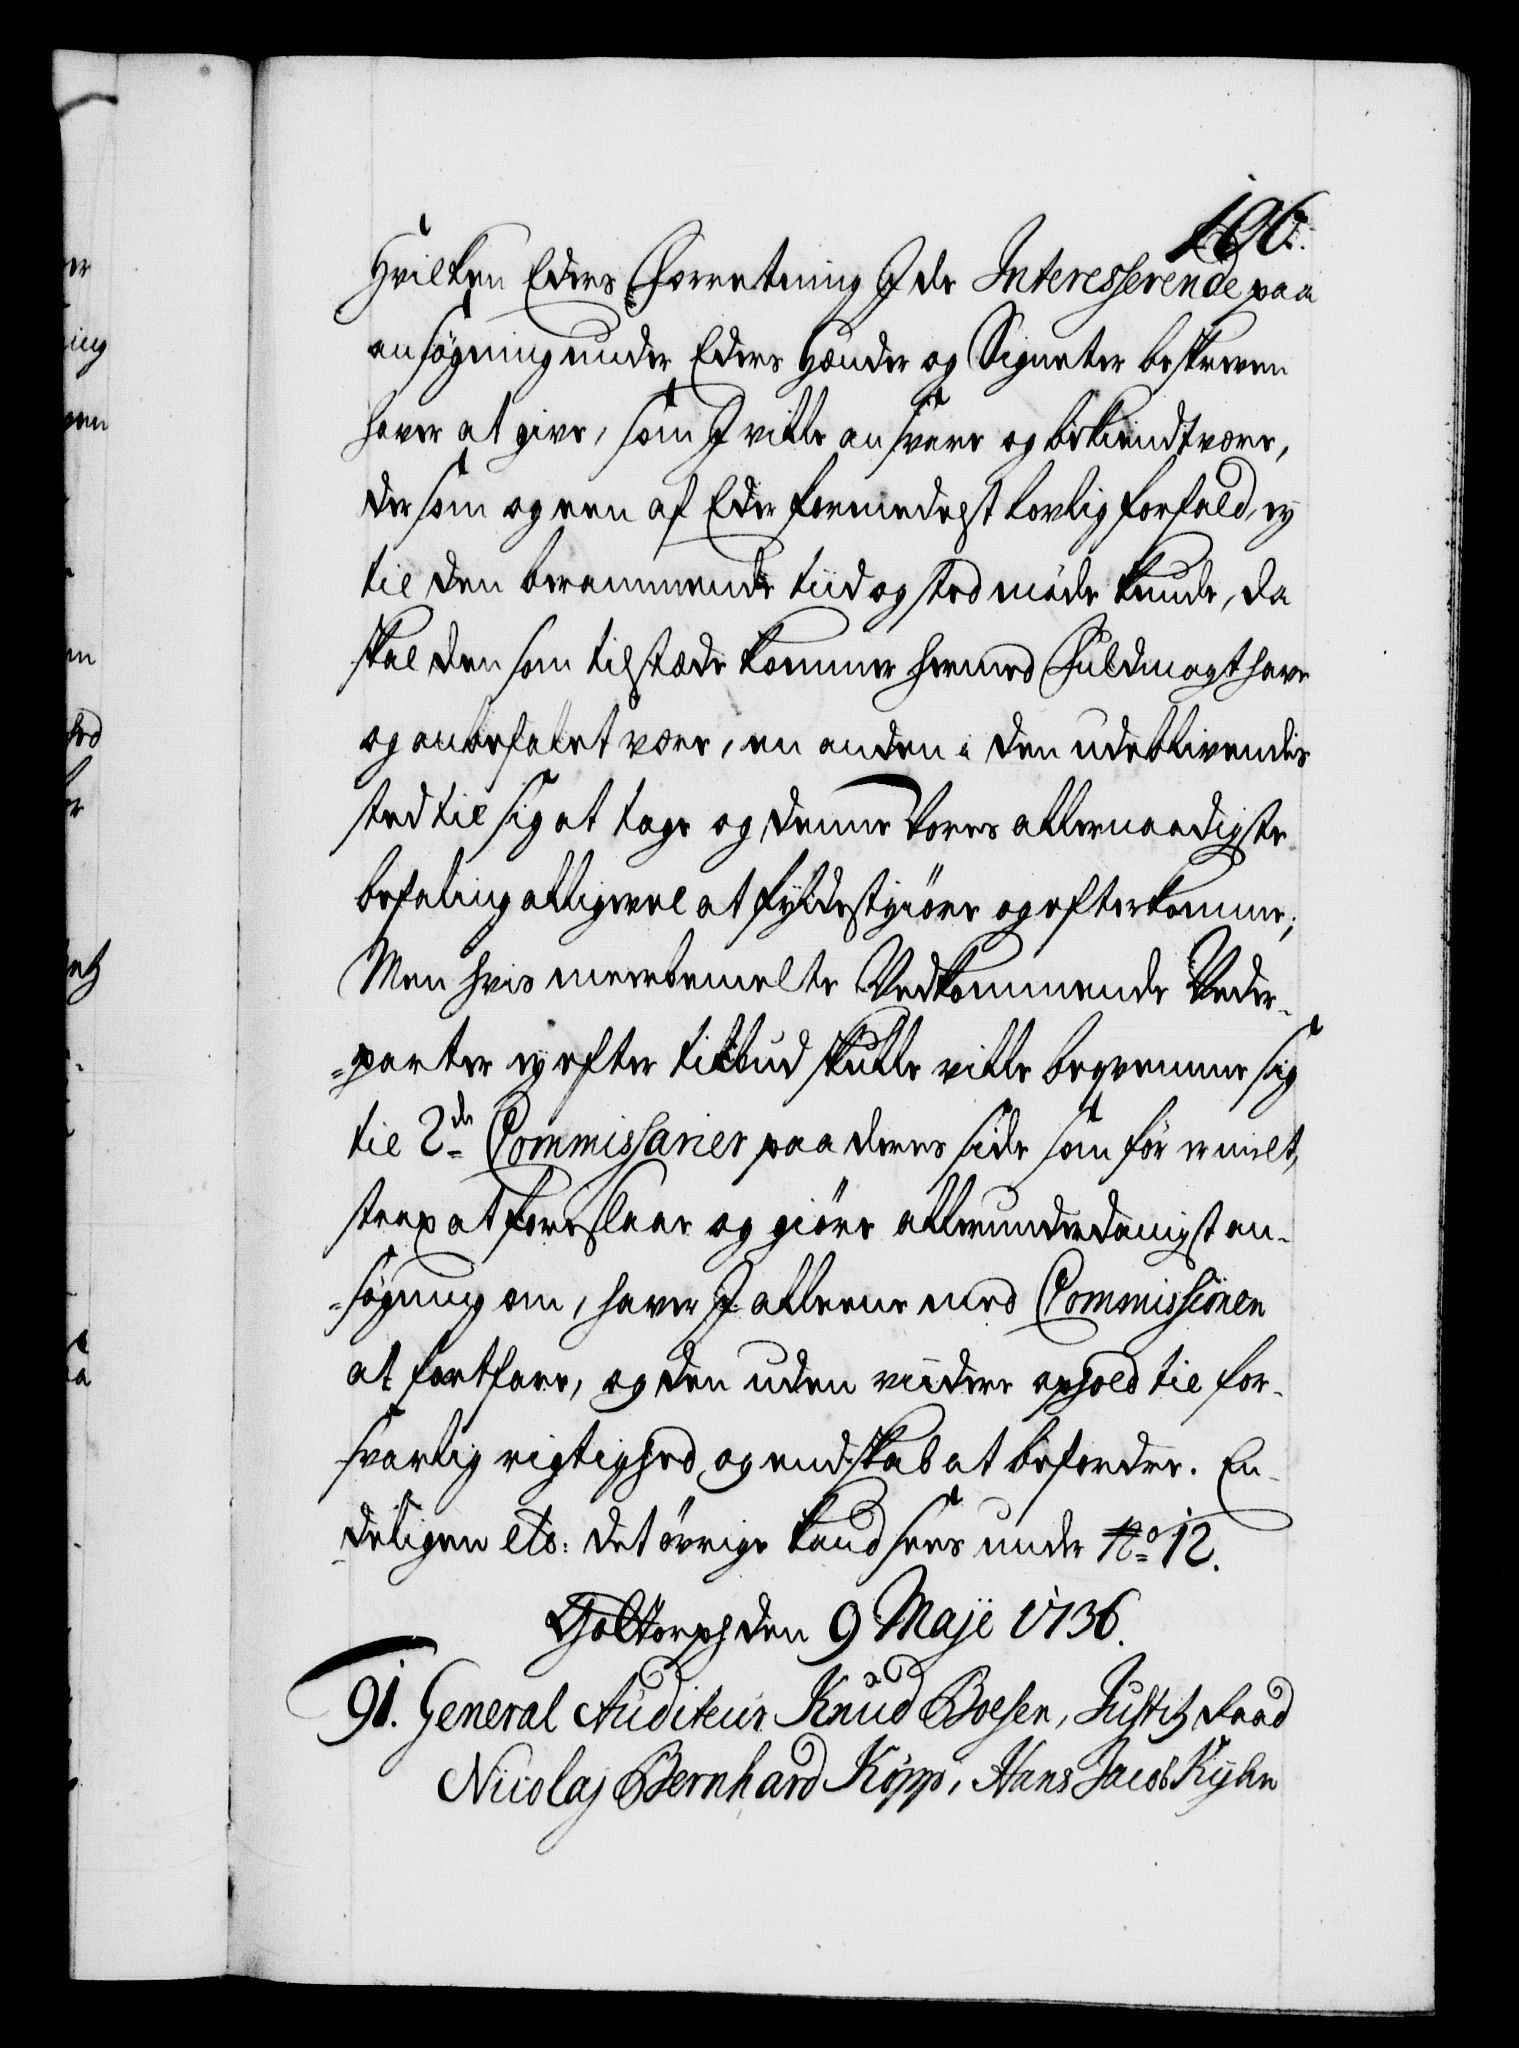 106.
Hvilken Eders Forretning I de Interesserende paa
ansøgning under Eders Hænder og Signeter beskreven
haver at give, som I ville ansvare og bekiendt være,
der som og een af Eder formedelst lovlig forfald, ey
til den berammende tiid og sted møde kunde, da
skal den som tilstæde kommer hermed Fuldmagt have
og anbefalet være, en anden i den udeblivendes
sted til sig at tage og denne Vores allernaadigste
befaling alligevel at fyldestgiøre og efterkomme;
Men hvis meerbemelte Vedkommende Veder-
=parter ey efter tilbud skulle ville beqvemme sig
til 2de Commissarier paa deres side som før er melt,
strax at foreslaae og giøre allerunderdanigst an-
=søgning om, haver I alleene med Commissionen
at fortfare, og den uden viidere ophold til for-
svarlig rigtighed og endskab at befordre. En-
deligen etc: det øvrige kand sees under No 12.
Gottorph den 9 Maji 1736.
91. General Auditeur Knud Boesen, Justitz Raad
Nicolaj Bernhard Köpp, Hans Jacob Kyhn